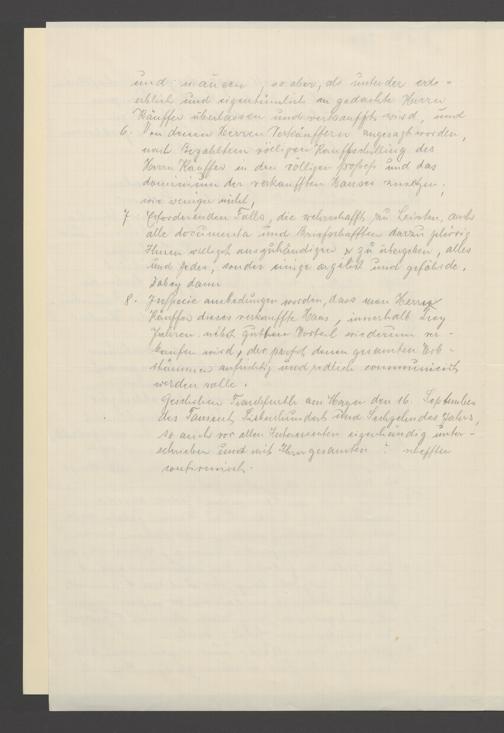 und so aber, als unter der erb-
erblich und eigentümlich an gedachte Herrn
Käuffer überlassen und verkaufft wird, und
6. Von denen Herren Verkäuffern zugesagt worden,
nach Bezahltem völligen Kauffschilling des
Herrn Käuffer in den völligen possess und das
dominium der verkaufften Hauses
wie weniger nicht,
7 Erforderenden Falls, die wehrschafft zu Leisten, auch
alle documenta und Briefschafften darzu gehörig
Ihnen auszuhändigen & zu übergeben, alles
und Jedes, sonder einige arglist und gefährde.
Dabey dann
8. In specie worden, dass wan Herr
Käuffer dieses verkauffte Haus, innerhalb Drey
Jahren mit Vorteil wiederum ver-
kaufen wird, der denen gesamten Erb-
aufrichtig und redlich communicirt
werden solle.
Geschehen Franckfurth am Mayn den 16. September
des Tausend Siebenhundert und Sechzehendes Jahrs,
so auch vor allen Interessenten eigenhändig unter-
schrieben und mit Ihren gesamten ?